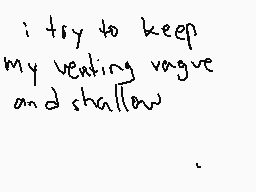 i try to keep
my venting vague
and shallow